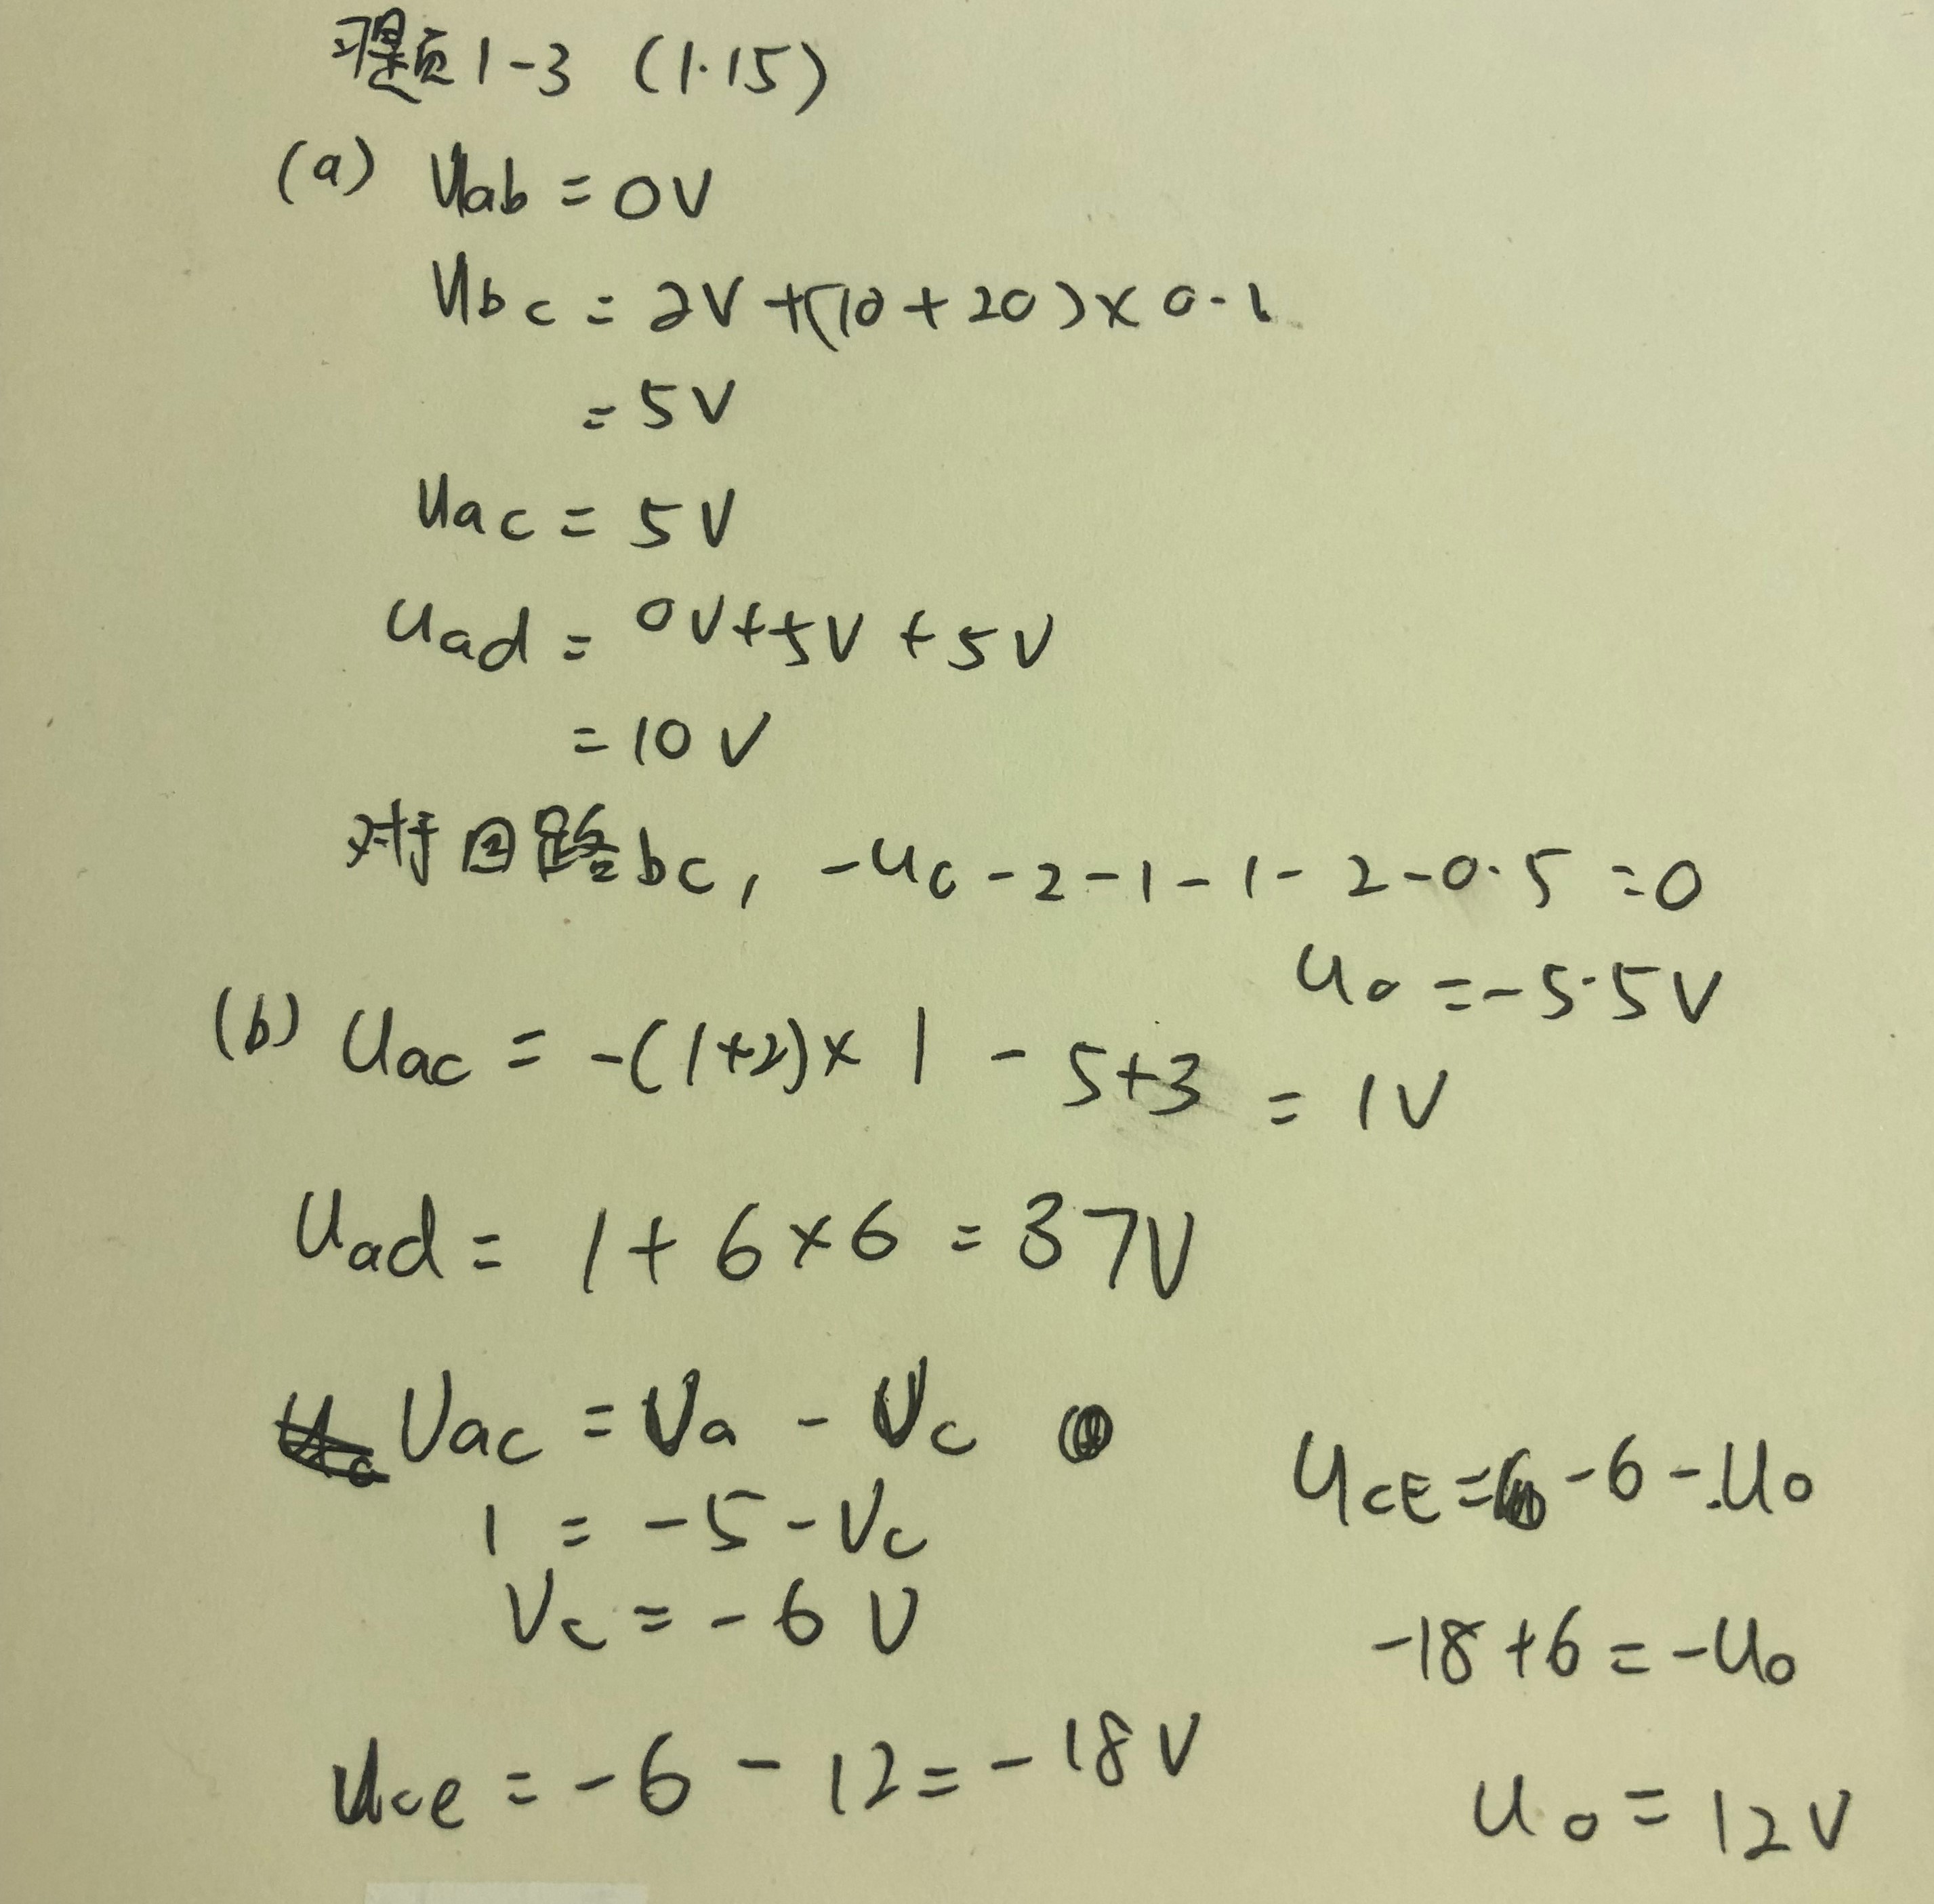 习题 1-3 (1.15)
(a) Uab = 0V
Ubc = 2V + (10 + 20) × 0.1
= 5V
Uac = 5V
Uad = 0V + 5V + 5V
= 10V
对于回路bc, -U0 - 2 - 1 - 1 - 2 - 0.5 = 0
U0 = -5.5V
(b) Uac = -(1+2)× 1 - 5+3 = 1V
Uad = 1 + 6 × 6 = 37V
Uac = Va - Vc
1 = -5 - Vc
Vc = -6 V
Uce = -6 - 12 = -18V
UCE = -6 - U0
-18 + 6 = -U0
U0 = 12V